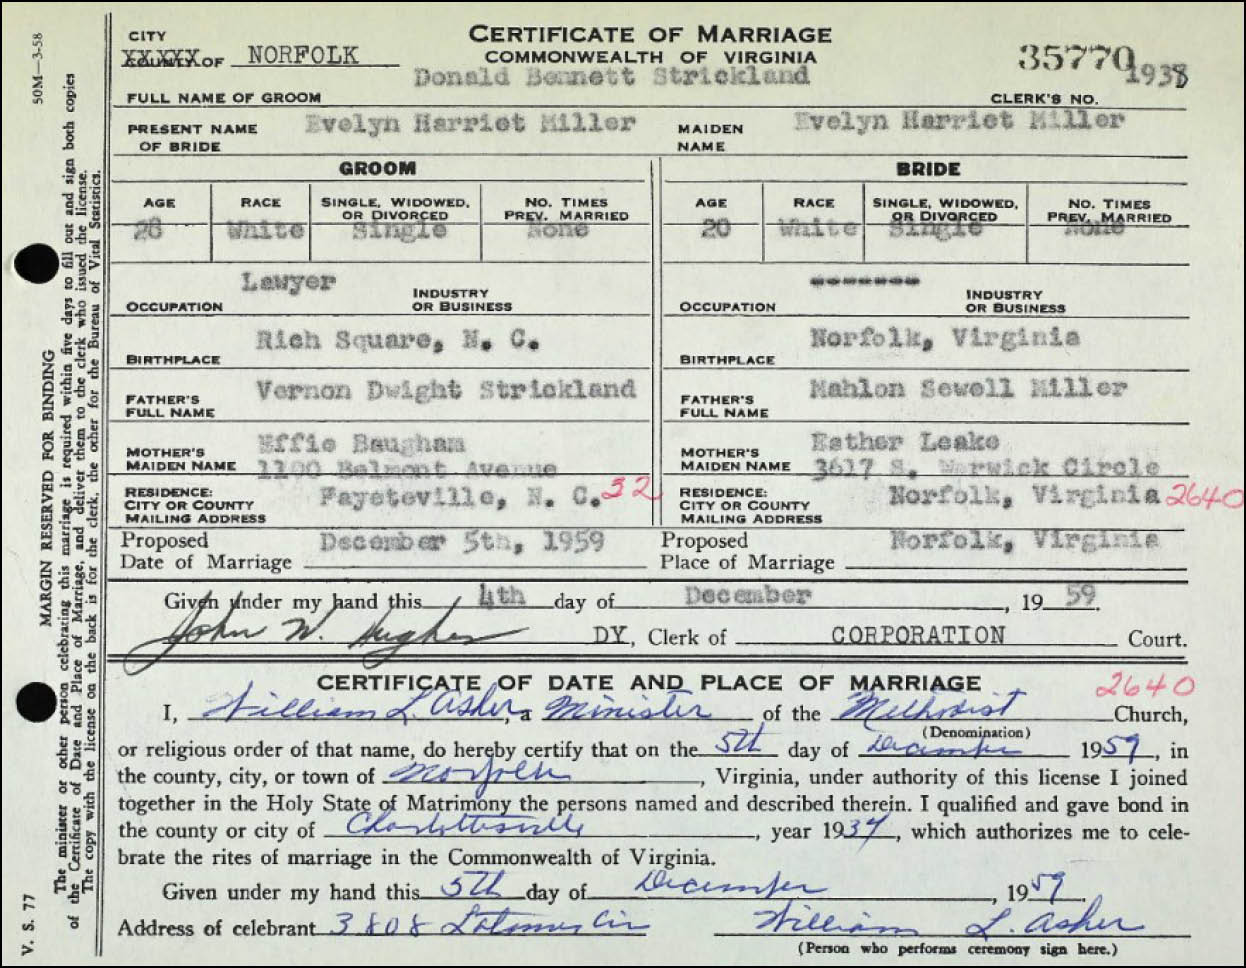 CERTIFICATE OF MARRIAGE
COMMONWEALTH OF VIRGINIA
CITY
COUNTY OF NORFOLK
35770 1938
Donald Bennett Strickland
FULL NAME OF GROOM CLERK'S NO.
PRESENT NAME OF BRIDE Evelyn Harriet Miller MAIDEN NAME Evelyn Harriet Miller
GROOM BRIDE
AGE RACE SINGLE, WIDOWED, OR DIVORCED NO. TIMES PREV. MARRIED AGE RACE SINGLE, WIDOWED, OR DIVORCED NO. TIMES PREV. MARRIED
28 White Single None 20 White Single None
Lawyer -------
OCCUPATION INDUSTRY OR BUSINESS OCCUPATION INDUSTRY OR BUSINESS
BIRTHPLACE Rich Square, N. C. BIRTHPLACE Norfolk, Virginia
FATHER'S FULL NAME Vernon Dwight Strickland FATHER'S FULL NAME Mahlon Sewell Miller
MOTHER'S MAIDEN NAME Effie Baugham MOTHER'S MAIDEN NAME Esther Leake
1100 Belmont Avenue 3617 S. Warwick Circle
RESIDENCE: CITY OR COUNTY MAILING ADDRESS Fayeteville, N. C. 32 RESIDENCE: CITY OR COUNTY MAILING ADDRESS Norfolk, Virginia 2640
Proposed Date of Marriage December 5th, 1959 Proposed Place of Marriage Norfolk, Virginia
Given under my hand this 4th day of December, 1959.
John W. Hughes DY, Clerk of CORPORATION Court.
CERTIFICATE OF DATE AND PLACE OF MARRIAGE 2640
I, William L. Asher, a Minister of the Methodist Church,
(Denomination)
or religious order of that name, do hereby certify that on the 5th day of December 1959, in
the county, city, or town of Norfolk, Virginia, under authority of this license I joined
together in the Holy State of Matrimony the persons named and described therein. I qualified and gave bond in
the county or city of Charlottesville, year 1934, which authorizes me to cele-
brate the rites of marriage in the Commonwealth of Virginia.
Given under my hand this 5th day of December, 1959.
Address of celebrant 3808 Cir William L. Asher
(Person who performs ceremony sign here.)
50M—3-58
MARGIN RESERVED FOR BINDING
V. S. 77
The minister or other person celebrating this marriage is required within five days to fill out and sign both copies
of the Certificate of Date and Place of Marriage, and deliver them to the clerk who issued the license.
The copy with the license on the back is for the clerk, the other for the Bureau of Vital Statistics.